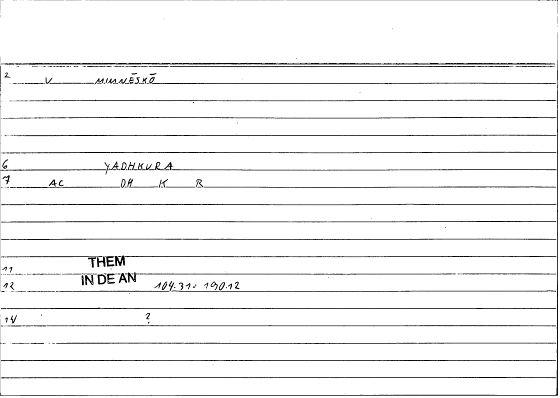 2 V MIMNĒSKŌ
6 YADHKURA
7 AC DH K R
THEM
11
IN DE AN
12 104.31= 190.12
14 ?